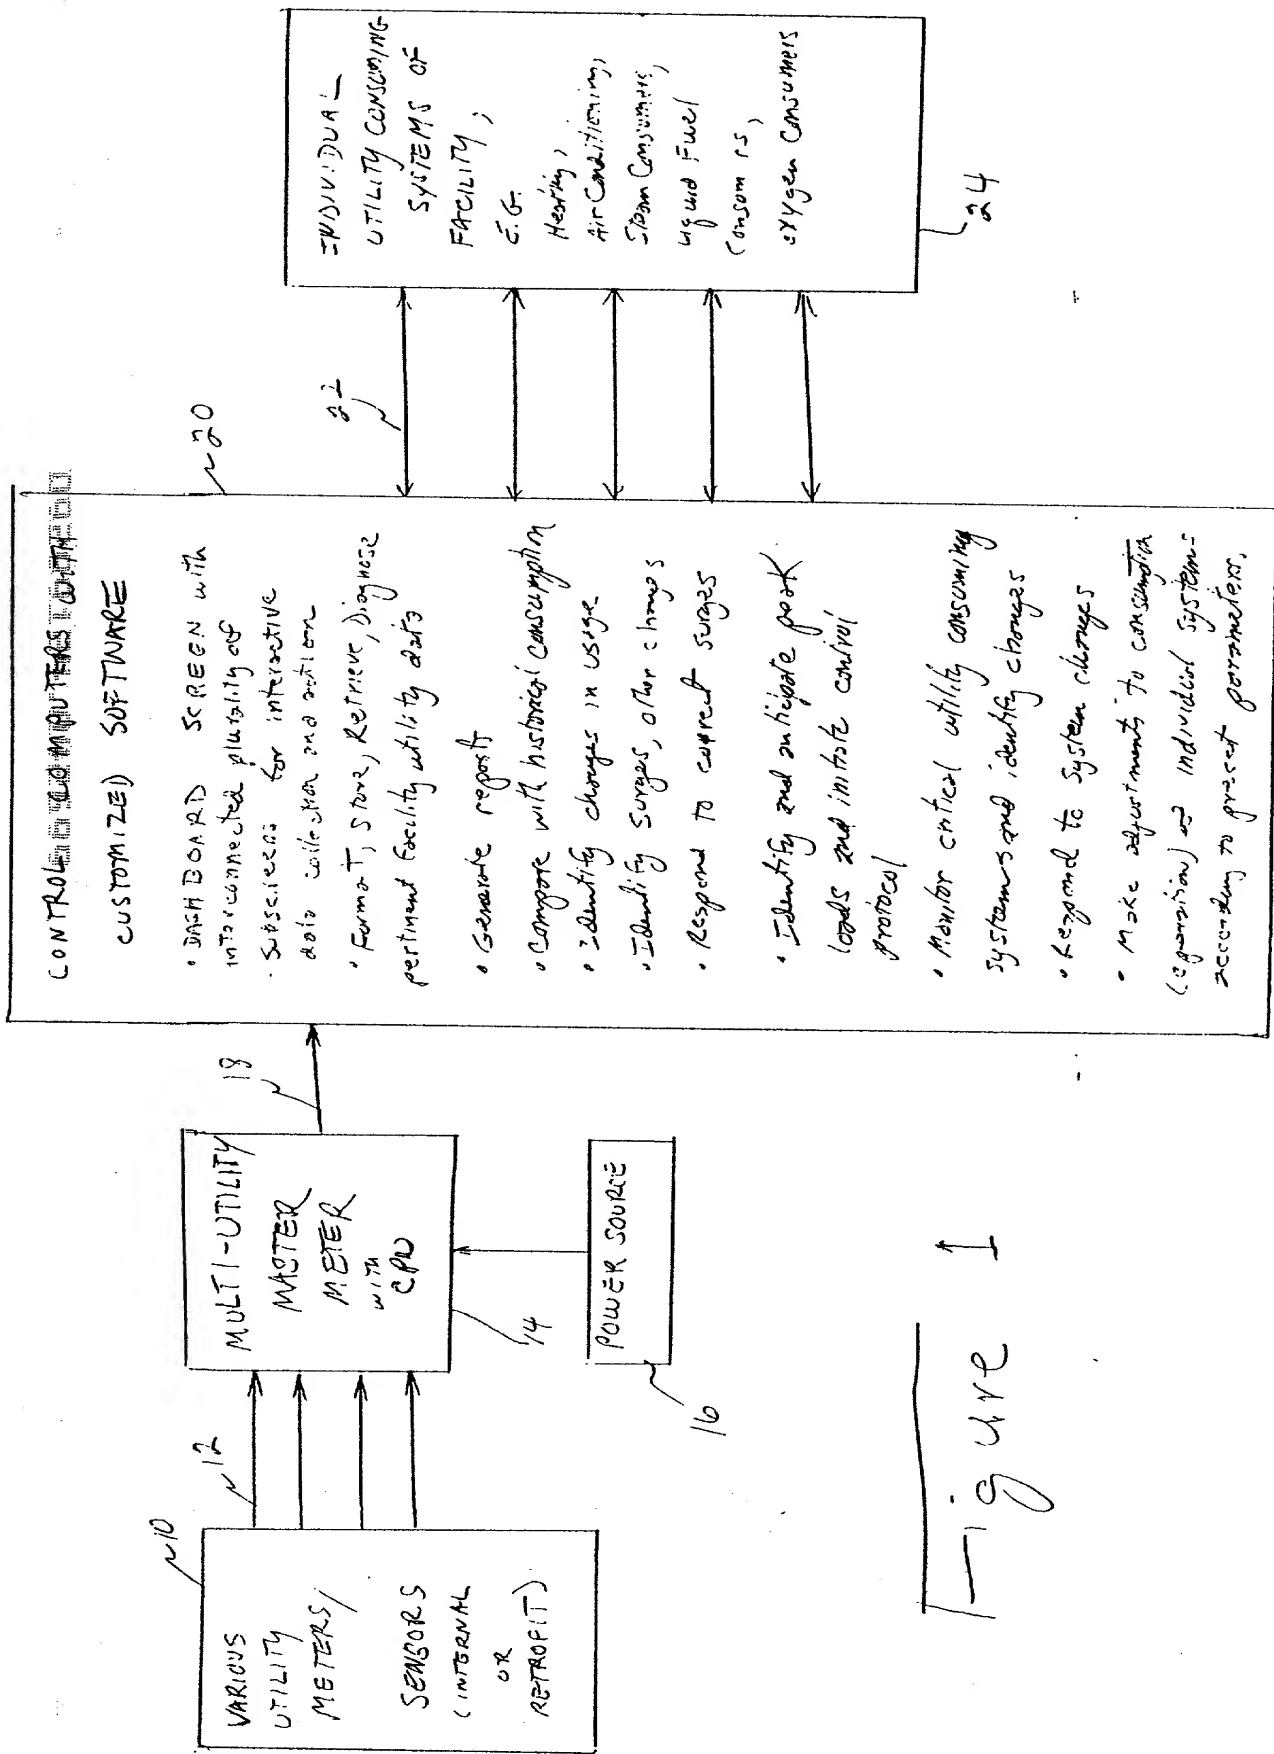 10
VARIOUS
UTILITY
METERS/
SENSORS
(INTERNAL
OR
RETROFIT)
12
MULTI-UTILITY
MASTER
METER
WITH
CPU
14
POWER SOURCE
16
18
CONTROL COMPUTERS WITH
CUSTOMIZED SOFTWARE
• DASHBOARD SCREEN with
interconnected plurality of
· Subscreens for interactive
data collection and action
• Format, Store, Retrieve, Diagnose
pertinent facility utility data
• Generate reports
• Compare with historical consumption
• Identify changes in usage
• Identify surges, other changes
• Respond to current surges
• Identify and anticipate peak
loads and initiate control
protocol
• Monitor critical utility consuming
systems and identify changes
• Respond to system changes
• Make adjustments to consumption
(operation) of individual systems
according to preset parameters.
20
22
INDIVIDUAL
UTILITY CONSUMING
SYSTEMS OF
FACILITY;
E.G.
Heating,
Air Conditioning,
Steam Consumers,
Liquid Fuel
Consumers,
oxygen Consumers
24
Figure 1